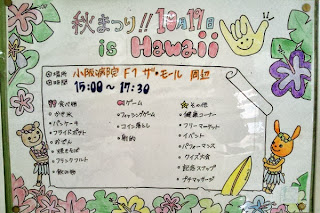 秋まつり!! 10月19日
is Hawaii
場所 小阪病院 F1 ザ・モール 周辺
時間 15:00〜17:30
食べ物
・かき氷
・パンケーキ
・フライドポテト
・おでん
・焼きそば
・フランクフルト
・飲み物
ゲーム
・フィッシングゲーム
・コイン落し
・射的
その他
・健康コーナー
・フリーマーケット
・イベント
・パフォーマンス
・クイズ大会
・記念スナップ
・プチマッサージ